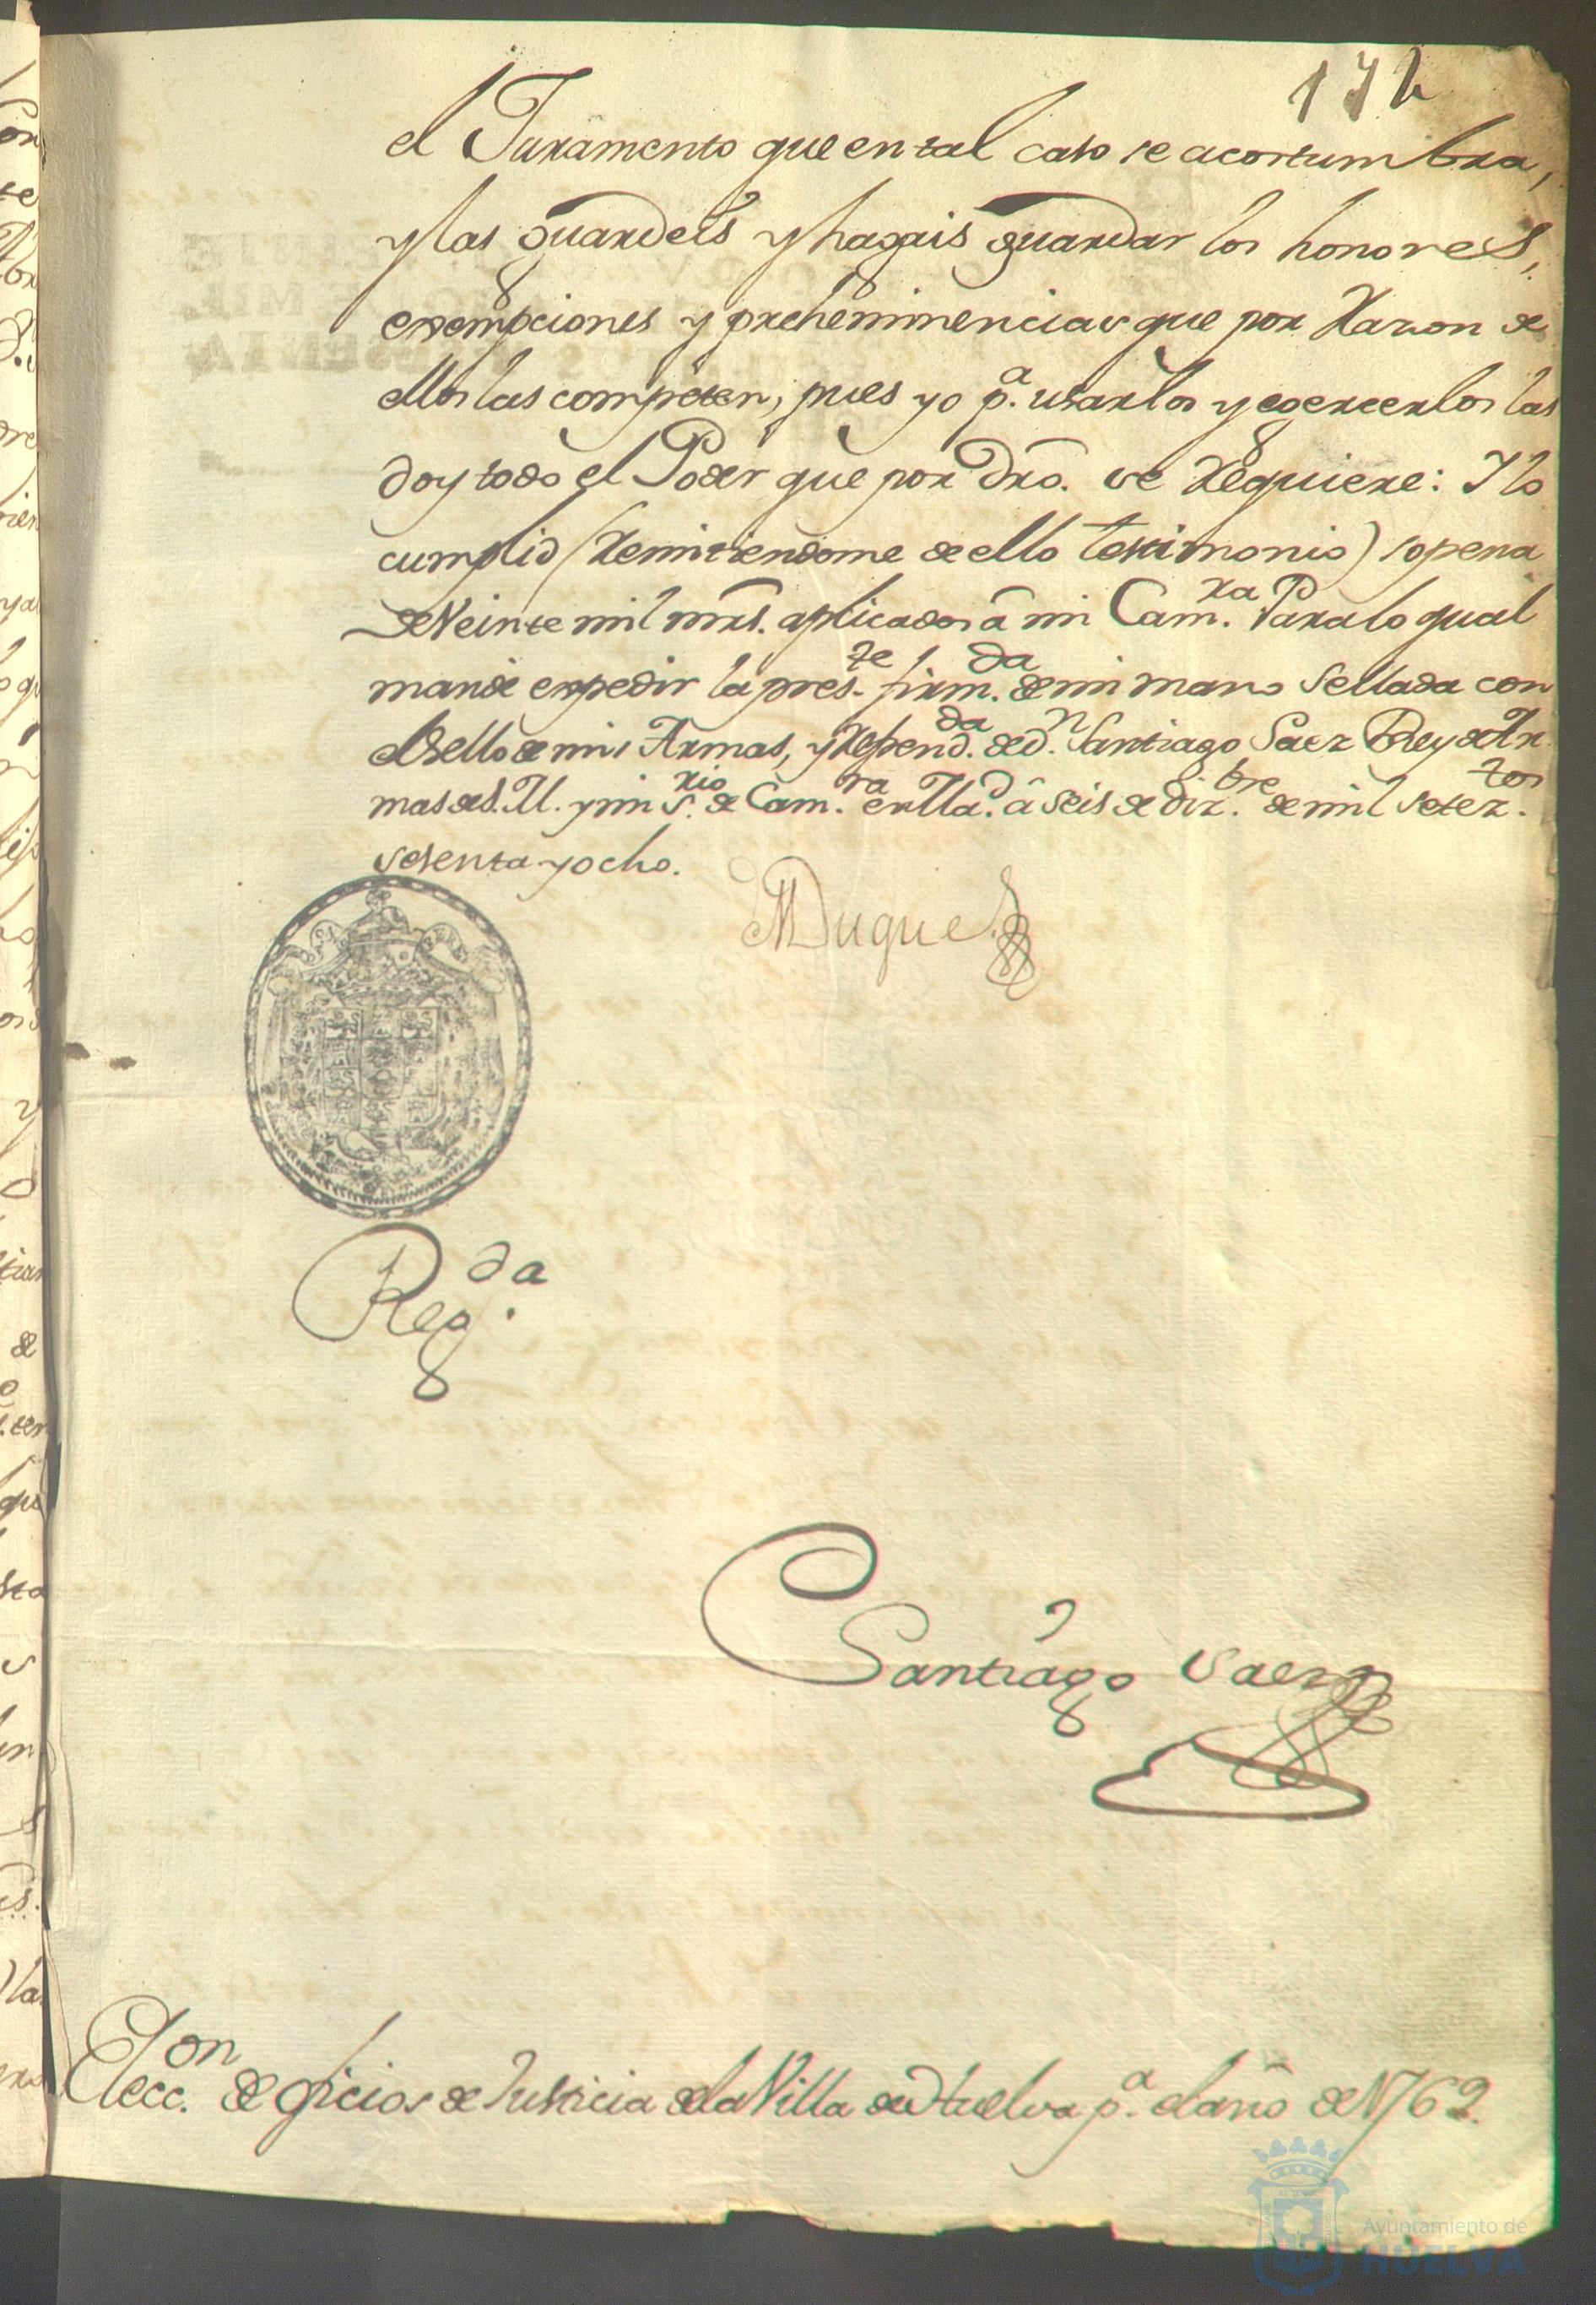 172
el Juramento que en tal caso se acostumbra,
y las guardeis y hagais guardar los honores,
exempciones y preheminencias que por Razon de
ellos las competen, pues yo p.ª usarlos y egercerlos las
doy todo el Poder que por Dro. se Requiere: Y lo
cumplid (Remitiendome de ello testimonio) sopena
de Veinte mil mrs. aplicados â mi Cam.ra Para lo qual
mandè expedir la pres.te firm.da de mi mano sellada con
el Sello de mis Armas, y Refrend.da de d.n Santiago Saez Rey de Ar-
mas de S. M. y mi S.rio de Cam.ra en Mad.d â seis de diz.bre de mil setez.tos
sesenta y ocho.
El Duque
Reg.da
Santiago Saez
Elecc.on de oficios de Justicia de la Villa de Huelva p.ª el año de 1769.
Ayuntamiento de
HUELVA